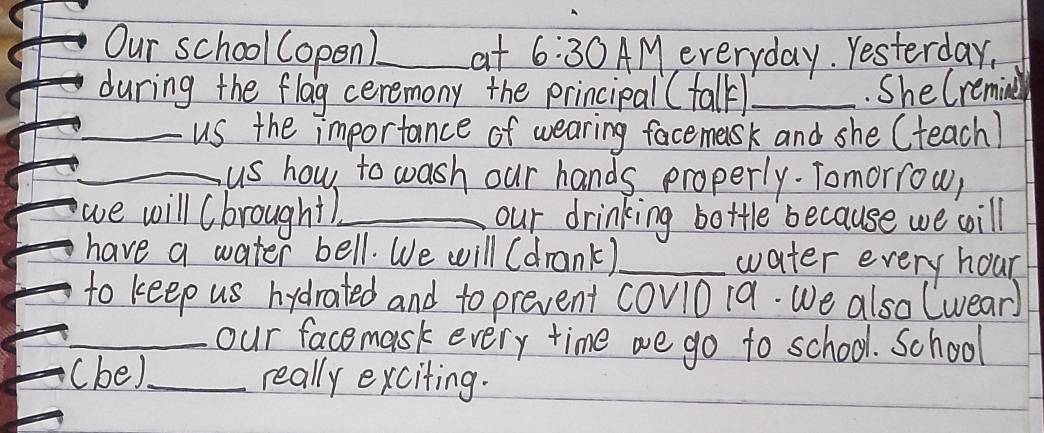 Our school (open)______at 6:30 AM everyday. Yesterday,
during the flag ceremony the principal (talk)_______. She (remind)
_______us the importance of wearing facemask and she (teach)
_________us how to wash our hands properly. Tomorrow,
we will (brought)_________our drinking bottle because we will
have a water bell. We will (drank)______water every hour
to keep us hydrated and to prevent COVID 19. We also (wear)
_________our facemask every time we go to school. School
(be)______really exciting.